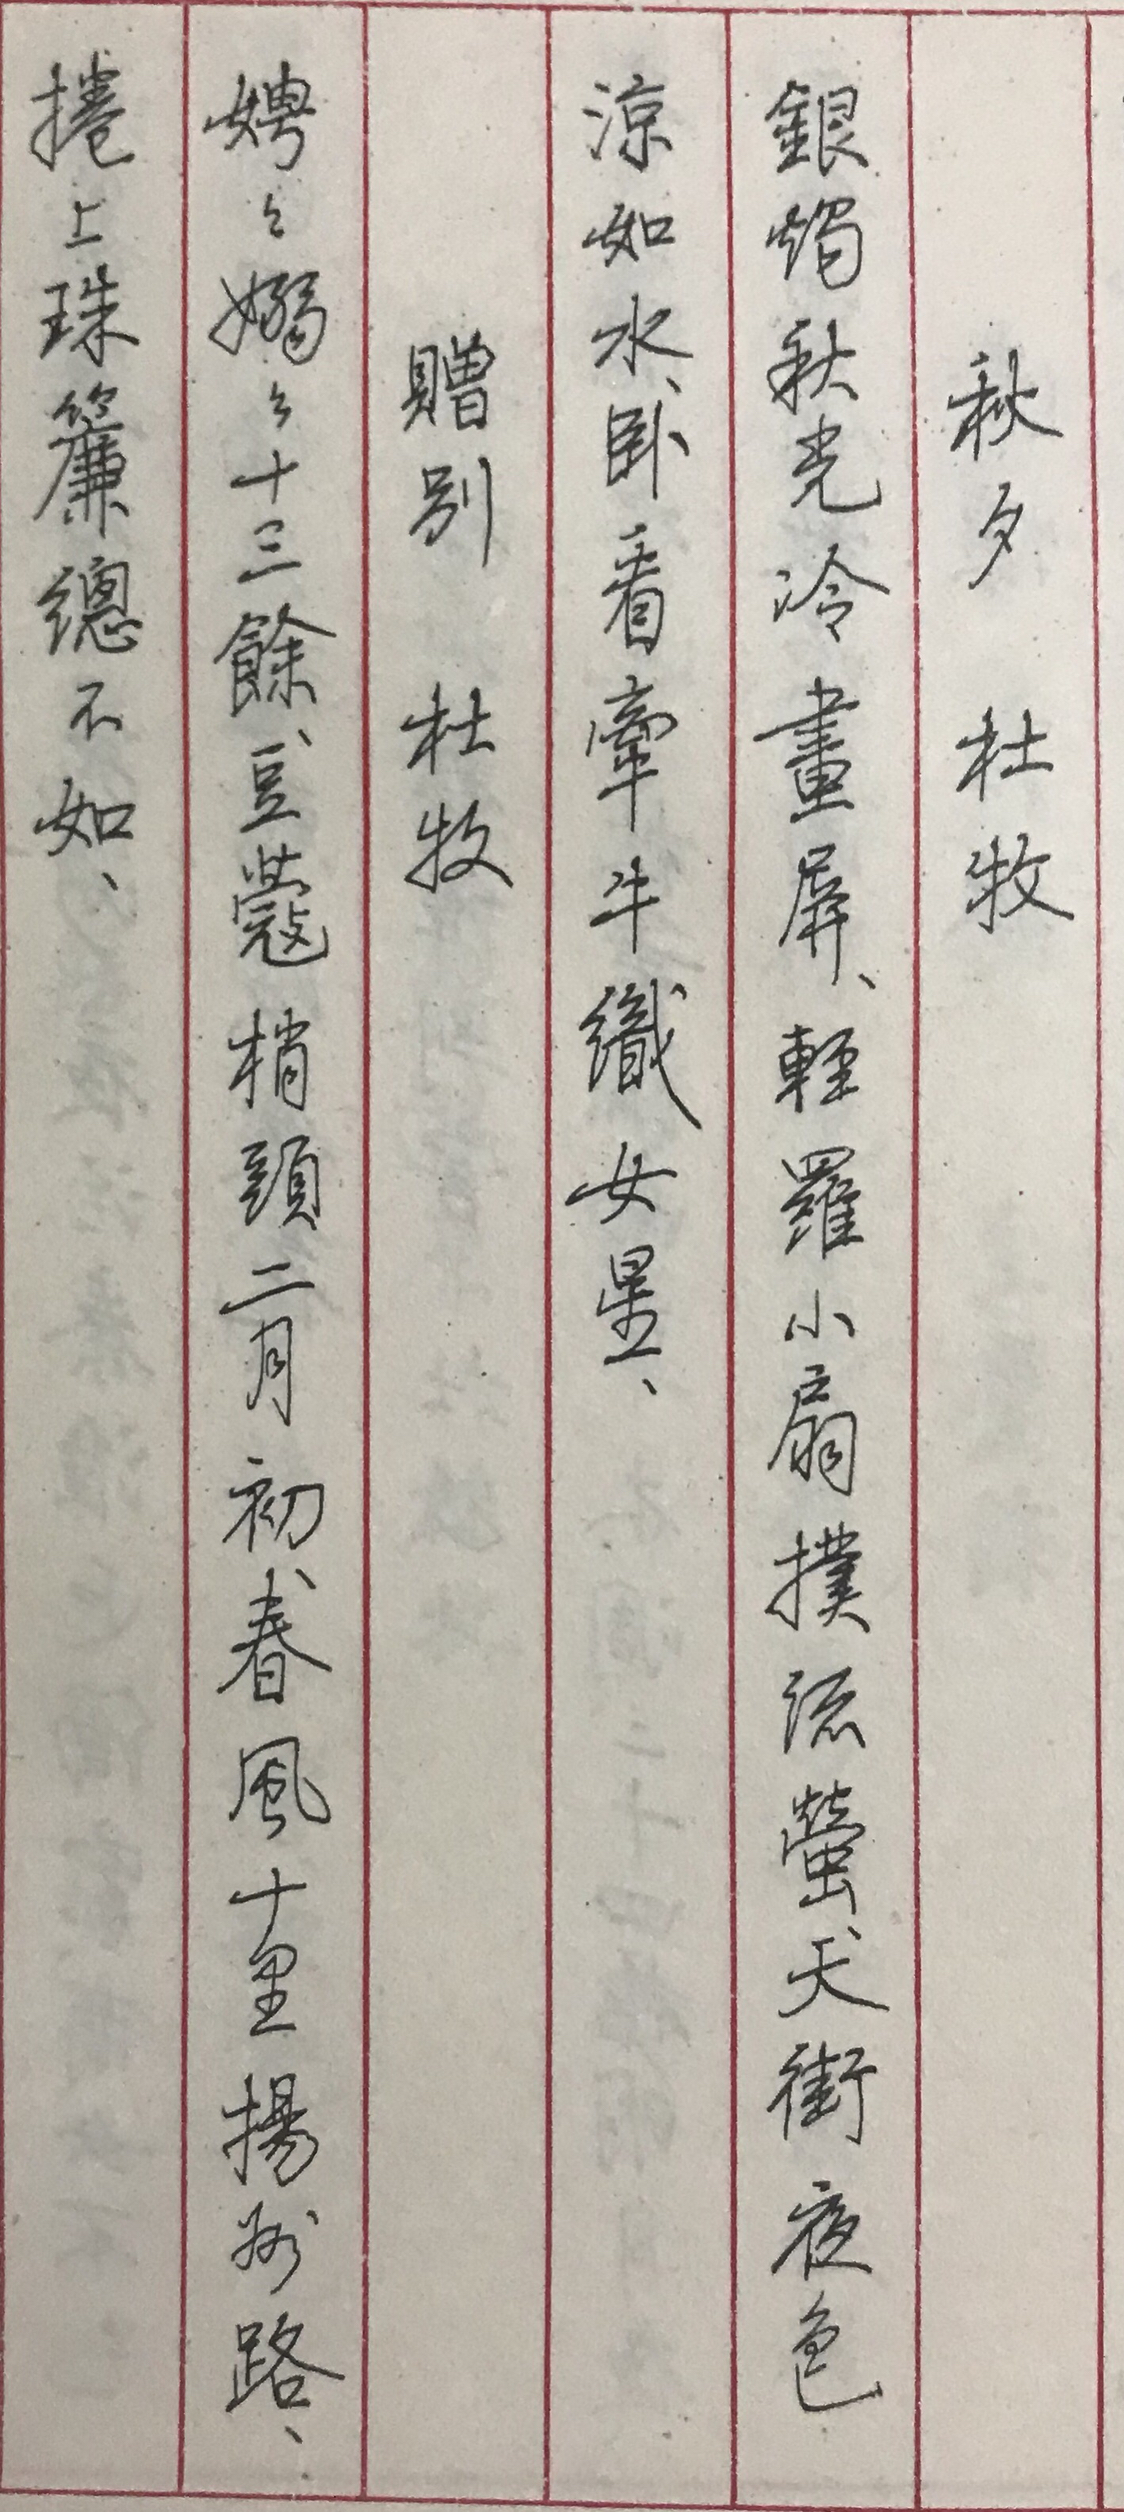 秋夕 杜牧
銀燭秋光冷畫屏、輕羅小扇撲流螢、天街夜色
涼如水、卧看牽牛織女星、
贈别 杜牧
娉〻嫋〻十三餘、豆蔻梢頭二月初、春風十里揚州路、
捲上珠簾總不如、